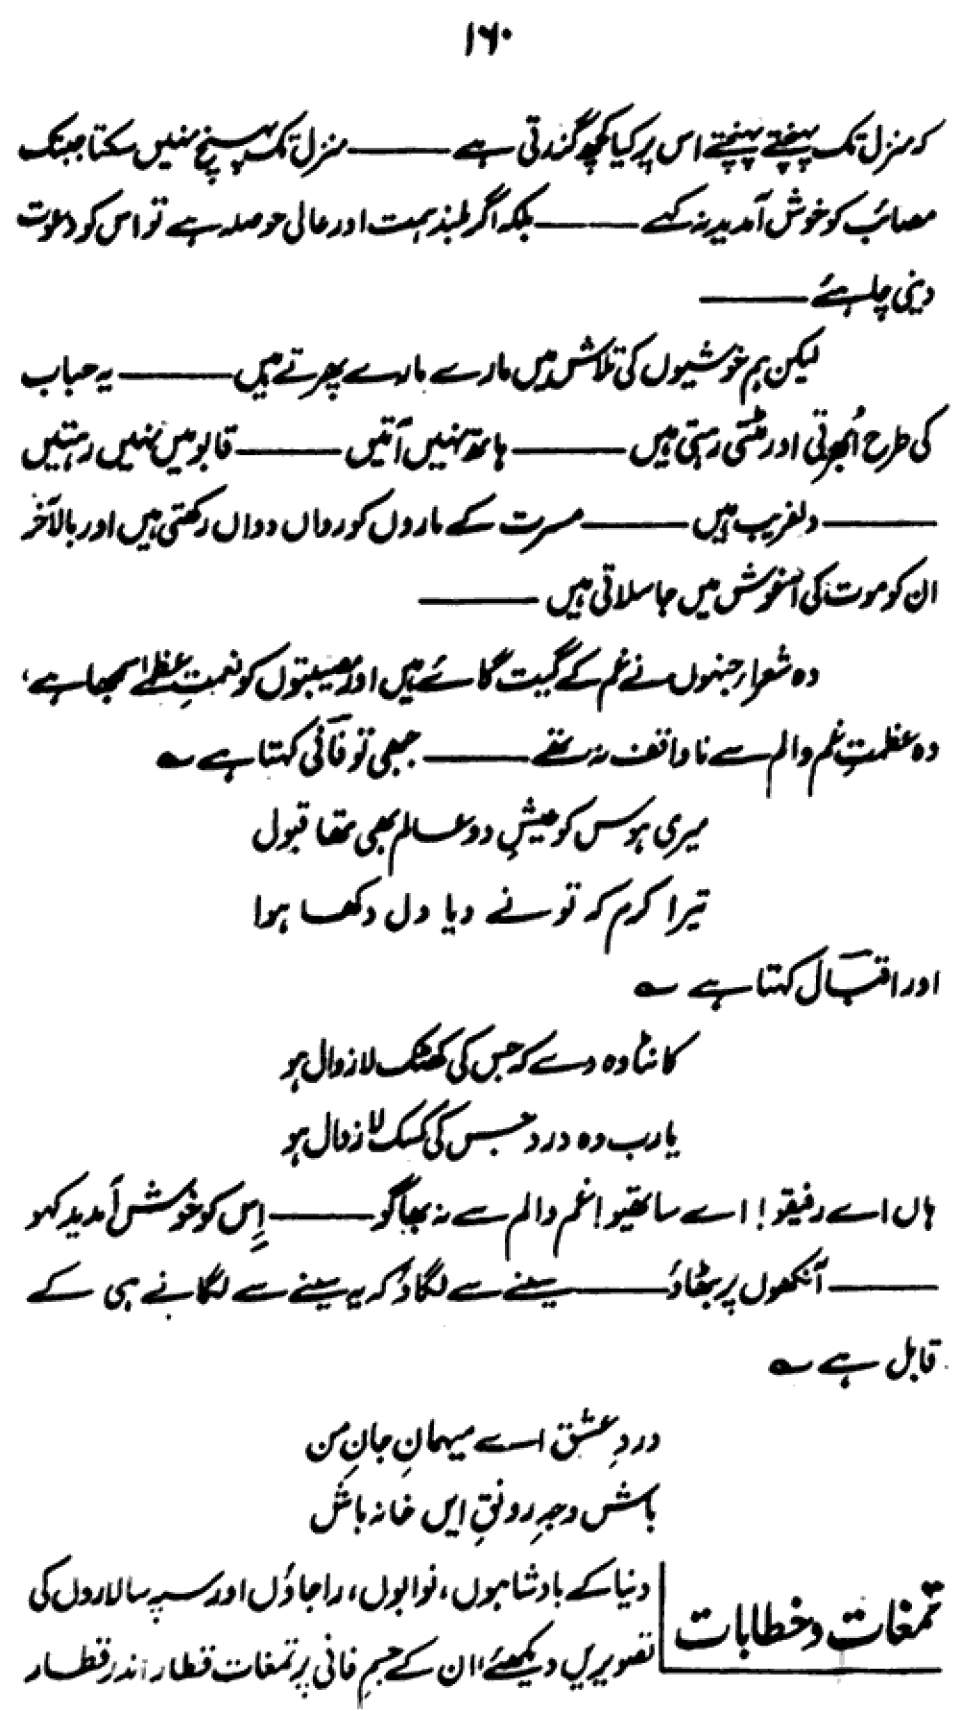 ۱۶۰
کہ منزل تک پہنچتے پہنچتے اس پر کیا کچھ گزرتی ہے ——— منزل تک پہنچ نہیں سکتا جبتک
مصائب کو خوش آمدید نہ کہے ——— بلکہ اگر بلند ہمت اور عالی حوصلہ ہے تو اس کو دعوت
دینی چاہئے ———
لیکن ہم خوشیوں کی تلاش میں مارے مارے پھرتے ہیں ——— یہ حباب
کی طرح اُبھرتی اور مٹتی رہتی ہیں ——— ہاتھ نہیں آتیں ——— قابو میں نہیں رہتیں
——— دلفریب ہیں ——— مسرت کے ماروں کو رواں دواں رکھتی ہیں اور بالآخر
ان کو موت کی آغوش میں جا سلاتی ہیں ———
وہ شعراء جنہوں نے غم کے گیت گائے ہیں اور مصیبتوں کو نعمتِ عظمےٰ سمجھا ہے،
وہ عظمتِ غم و الم سے ناواقف نہ تھے ——— جبھی تو فانی کہتا ہے ؎
میری ہوس کو عیشِ دو عالم بھی تھا قبول
تیرا کرم کہ تو نے دیا دل دکھا ہوا
اور اقبال کہتا ہے ؎
کانٹا وہ دے کہ جس کی کھٹک لازوال ہو
یارب وہ درد جس کی کسک لازوال ہو
ہاں اے رفیقو! اے ساتھیو! غم و الم سے نہ بھاگو ——— اِس کو خوش آمدید کہو
——— آنکھوں پر بٹھاؤ ——— سینے سے لگاؤ کہ یہ سینے سے لگانے ہی کے
قابل ہے ؎
دردِ عشق اے میہمانِ جانِ من
باش وجہِ رونقِ ایں خانہ باش
تمغات و خطابات
دنیا کے بادشاہوں، نوابوں، راجاؤں اور سپہ سالاروں کی
تصویریں دیکھئے، ان کے جسمِ فانی پر تمغات قطار اندر قطار